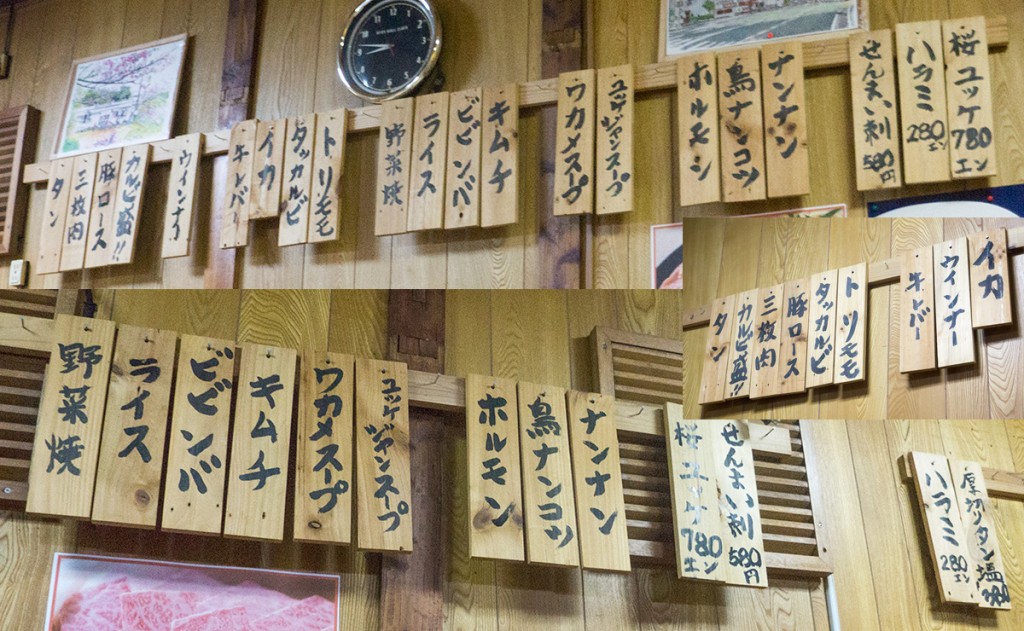 タン
三枚肉
豚ロース
カルビ盛!!
ウインナー
牛レバー
イカ
タッカルビ
トリモモ
野菜焼
ライス
ビビンバ
キムチ
ワカメスープ
ユッゲジャンスープ
ホルモン
鳥ナンコツ
ナンナン
せんまい刺
580円
ハラミ
280エン
桜ユッケ
780エン
タン
カルビ盛!!
三枚肉
豚ロース
タッカルビ
トリモモ
牛レバー
ウインナー
イカ
野菜焼
ライス
ビビンバ
キムチ
ワカメスープ
ユッゲジャンスープ
ホルモン
鳥ナンコツ
ナンナン
桜ユッケ
780エン
せんまい刺
580円
ハラミ
280エン
厚切りタン塩